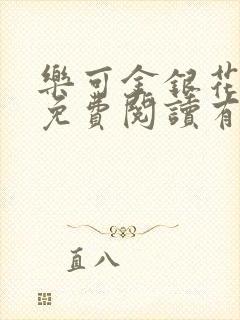 樂可金銀花
免費閱讀有
直八